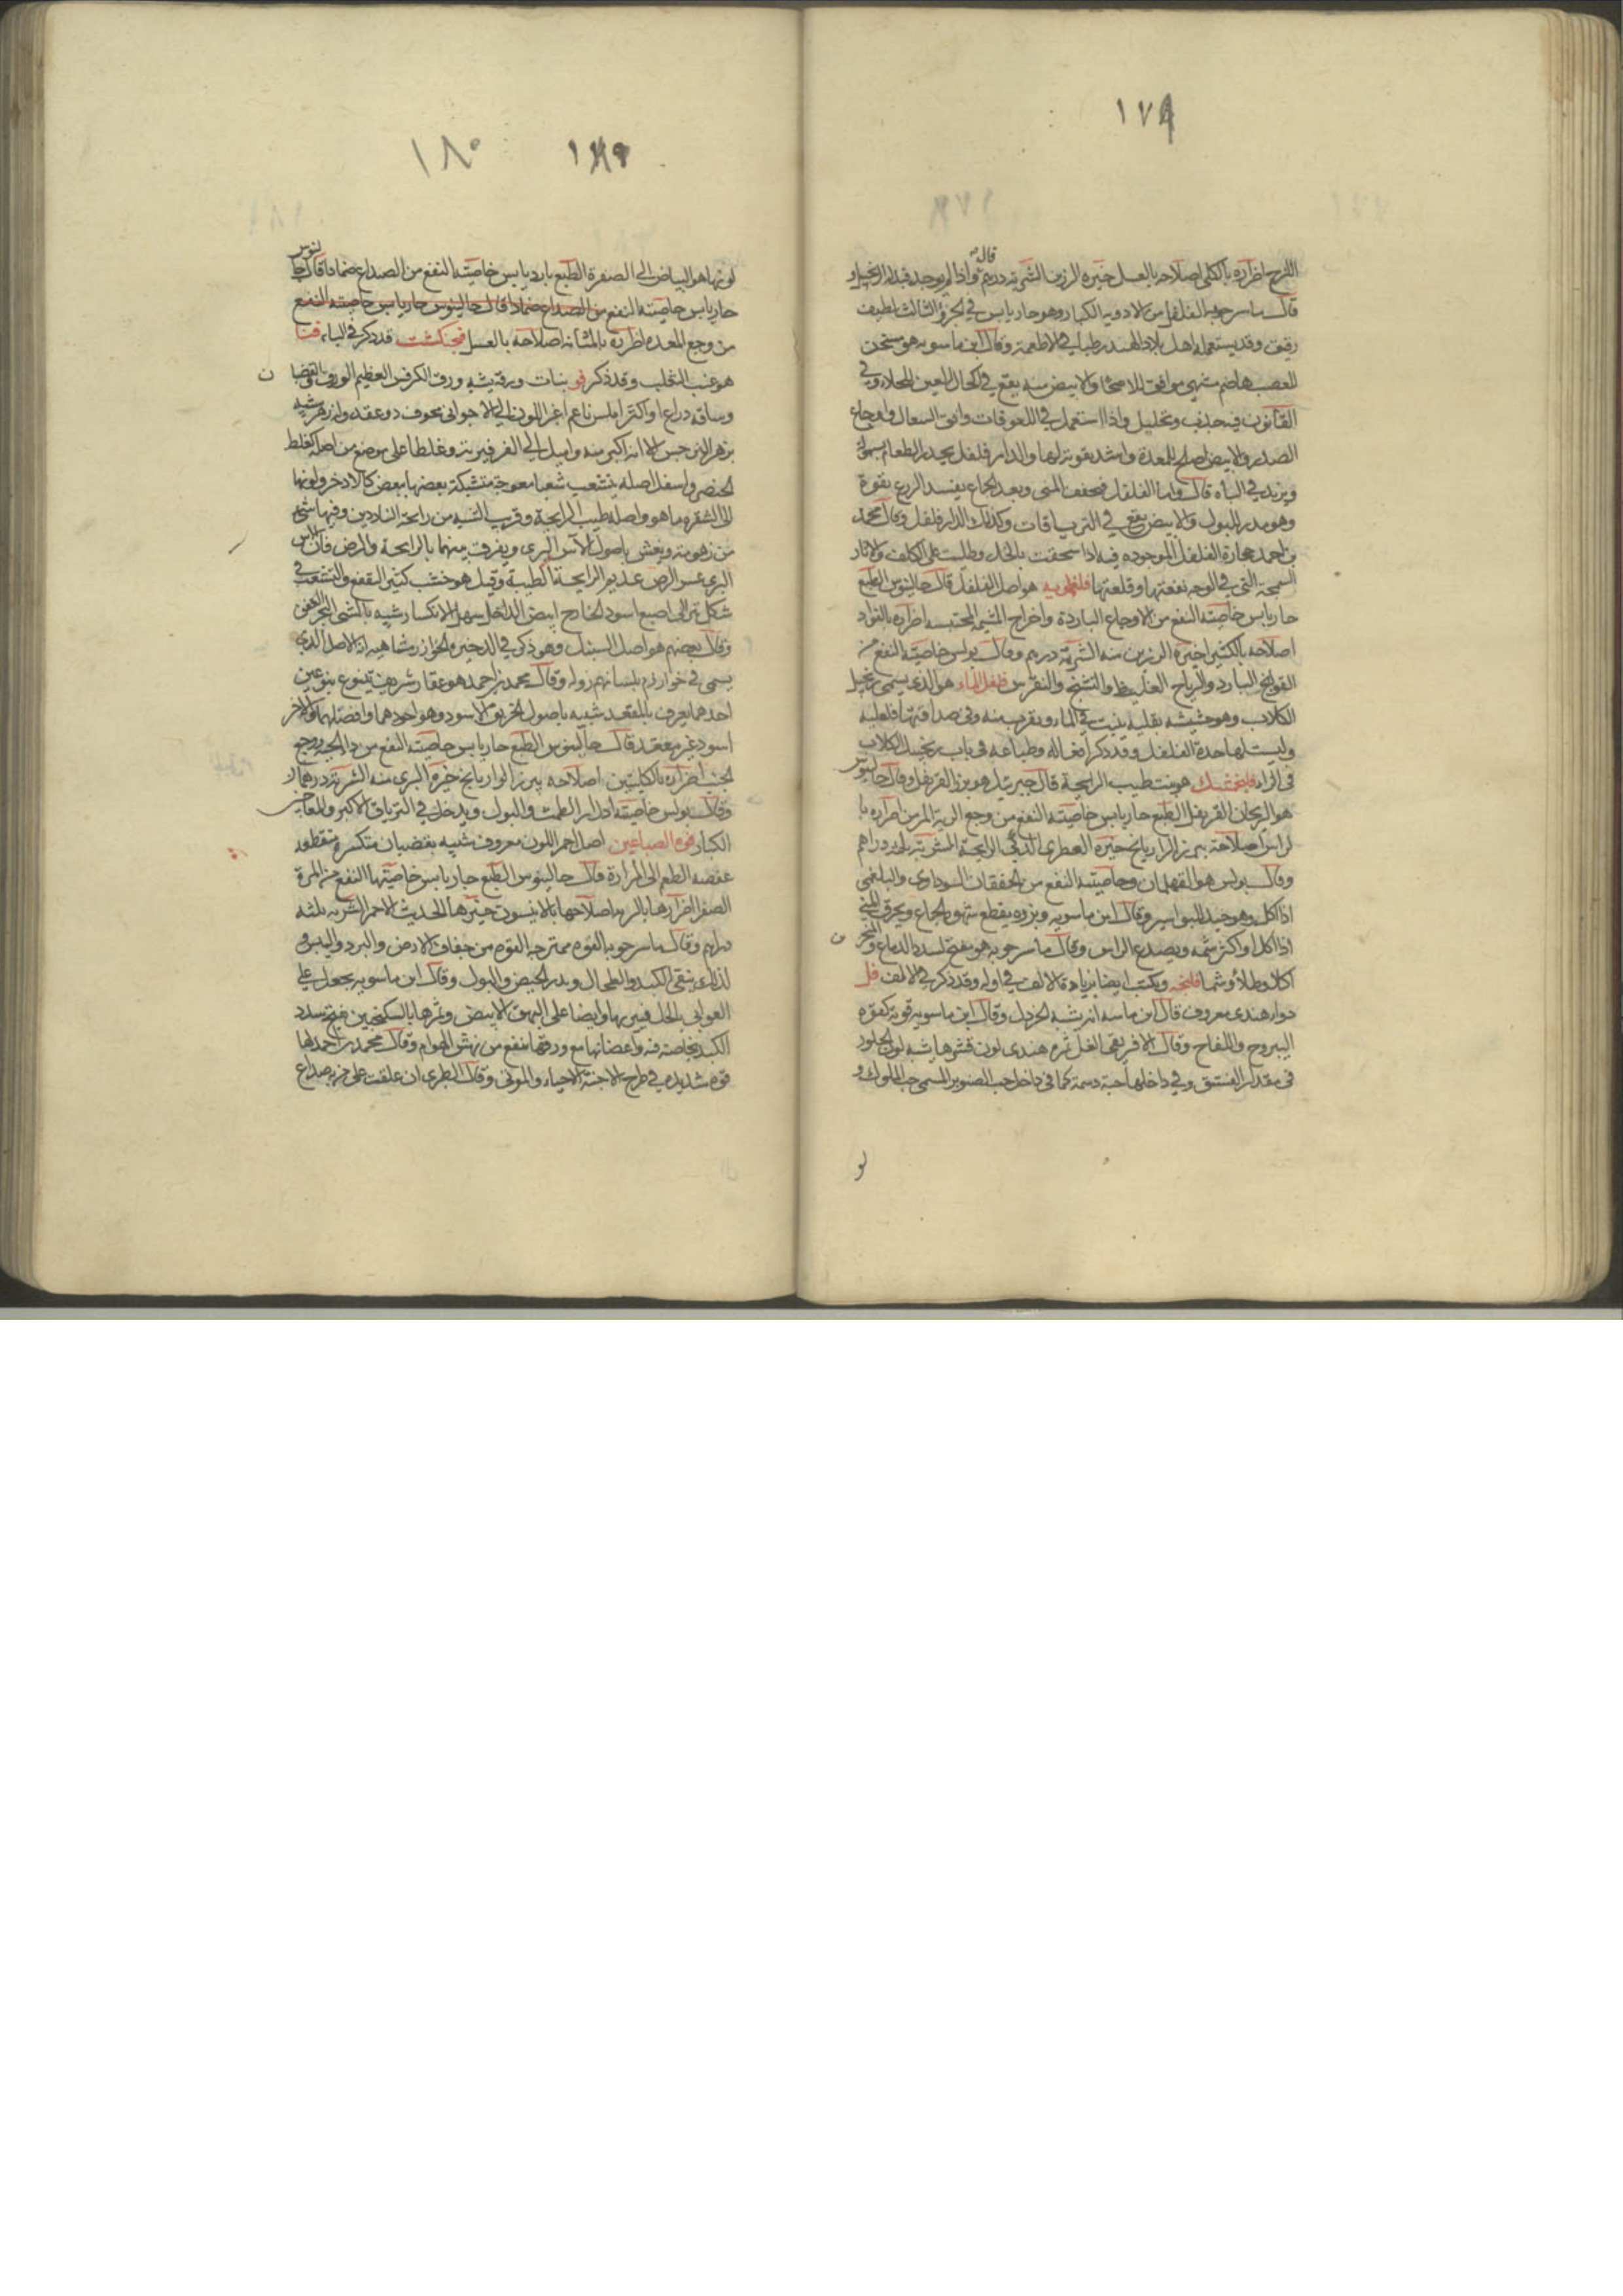 ١٧٩
قاله
اللزج اضراره بالكلى اصلاحه بالعسل خيره الرزين الشربة درهم واذا لم يوجد فبدله الزنجبيل و
قال ماسرجويه الفلفل من الادوية الكبار وهو حار يابس في الجزو الثالث لطيف
رقيق وقد يستعمله اهل بلاد الهند رطبا في الاطعمة وقال ابن ماسويه هو مسخن
للعصب هاضم مشهي موافق للاصحا والابيض منه يقع في اكحال العين الجلاء وفي
القانون فيه جذب وتحليل واذا استعمل في اللعوقات وافق السعال واوجاع
الصدر والابيض اصلح للمعدة واشد تقوية لها والدار فلفل يحدر الطعام بسهولة
ويزيد في الباه قال واما الفلفل فيجفف المنى وبعد الجماع يفسد الزرع بقوة
وهو مدر للبول والابيض يقع في الترياقات وكذلك الدار فلفل وقال محمد
بن احمد حجارة الفلفل الموجودة فيه اذا سحقت بالخل وطليت على الكلف والاثار
السمجة التي في الوجه نفعتها وقلعتها فلفلمويه هو اصل الفلفل قال جالينوس الطبع
حار يابس خاصيته النفع من الاوجاع الباردة واخراج المشيمة المحتبسة اضراره بالفواد
اصلاحه بالكثيرا خيره الرزين منه الشربة درهم وقال بولس خاصيته النفع من
القولنج البارد والرياح الغليظ والتشنج والنقرس فلفل الماء هو الذي يسمى زنجبيل
الكلاب وهو حشيشه بقلية ينبت في الماء وبقرب منه وفي مذاقتها فلفلية
وليست لها حدة الفلفل وقد ذكر افعاله وطباعه في باب زنجبيل الكلاب
في الزاء فلنجمشك هو نبت طيب الرايحة قال جبرئيل هو بزر القرنفل وقال جالينوس
هو الريحان القرنفلى الطبع حار يابس خاصيته النفع من وجع الرية المزمن اضراره با
لراس اصلاحه ببزر الرازيانج خيره العطري الذكي الرايحة الشربة دراهم
وقال بولس هو القهلمان وخاصيته النفع من الخفقان السوداوى والبلغمى
اذا اكل وهو جيد للبواسير وقال ابن ماسويه وبزوره يقطع شهوة الجماع ويحرق المني
اذا اكل او اكثر شمه ويصدع الراس وقال ماسرجويه هو يفتح لسدد الدماغ والمنخر
اكلا وطلاء وشما فلنجه ويكتب ايضا بزيادة الالف في اوله وقد ذكر في الالف فل
دواء هندى معروف قال ابن ماسه انه يشبه الخردل وقال ابن ماسويه قوته كقوة
اليبروح واللفاح وقال الافريقى الفل ثمره هندى لون قشرها يشبه لون الجلود
في مقدار الفستق وفي داخلها حبة دسمة كما في داخل حب الصنوبر المسمى حب الملوك و
لو
١٧٩
١٨٠
لونها هو البياض الى الصفرة الطبع بارد يابس خاصيته النفع من الصداع ضمادا قال جالينوس
حار يابس خاصيته النفع من الصداع ضمادا قال جالينوس حار يابس خاصيته النفع
من وجع المعدة اضراره بالمثانة اصلاحه بالعسل فنجنكشت قد ذكر في الباء فنا
هو عنب الثعلب وقد ذكر فو نبات ورقه يشبه ورق الكرفس العظيم الورق والقضبا ن
وساقه ذراع او اكثر املس ناعم اغبر اللون الى الارجوانى مجوف ذو عقد وله زهر شبيه
بزهر النرجس الا انه اكبر منه واميل الى الفرفيرية وغلظ اعلى موضع من اصله كغلظ
الخنصر واسفل اصله يتشعب شعبا معوجة متشبكة بعضها ببعض كالاذخر ولونها
الى الشقرة ما هو واصله طيب الرايحة وقريب الشبه من رايحة الناردين وفيها شئ
من زهومة ويغش باصول الآس البرى ويفرق بينهما بالرايحة والرض فان الاس
البرى عسر الرض عديم الرايحة الطيبة وقيل هو خشب كثير القفع والتشعب في
شكل يرى الى اصبع اسود الخارج ابيض الداخل سهل الانكسار شبيه بالشى النخر العفن
وقال بعضهم هو اصل السنبل وهو ذكر في الذخيرة الخوارزمشاهيه انه الاصل الذي
يسمى في خوارزم بلسانهم زوله وقال محمد بن احمد هو عقار شريف يتنوع بنوعين
احدهما يعرف بالمقعد شبيه باصول الخربق الاسود وهو اجودهما وافضلهما والاخر
اسود غير معقد قال جالينوس الطبع حار يابس خاصيته النفع من داء الحية ووجع
الجنب اضراره بالكليتين اصلاحه ببزر الرازيانج خيره البرى منه الشربة درهما ن
وقال بولس خاصيته ادرار الطمث والبول ويدخل في الترياق الاكبر والمعاجين
الكبار فوه الصباغين اصل احمر اللون معروف شبيه بقضبان متكسره متقطعه
عفصه الطعم الى المرارة قال جالينوس الطبع حار يابس خاصيتها النفع من المرة
الصفرا اضرارها بالريه اصلاحها بالانيسون خيرها الحديث الاحمر الشربه ثلثه
دراهم وقال ماسرجويه الفوه ممتزجه القوه من جفاف الارض والبرد واليبس و
لذلك ينقى الكبد والطحال ويدر الحيض والبول وقال ابن ماسويه يجعل على
القوابي بالخل فيبريها وايضا على البهق الابيض وثمرها بالسكنجبين يفتح سدد
الكبد بخاصته فيه واغصانها مع ورقها ينفع من نهش الهوام وقال محمد بن احمد لها
قوه شديده في طرح الاجنة الاحياء والموتى وقال الطبرى ان علقت على من به صداع